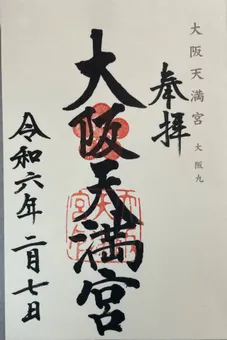 大阪天満宮 大阪九
奉拝
大阪天満宮
令和六年 二月七日